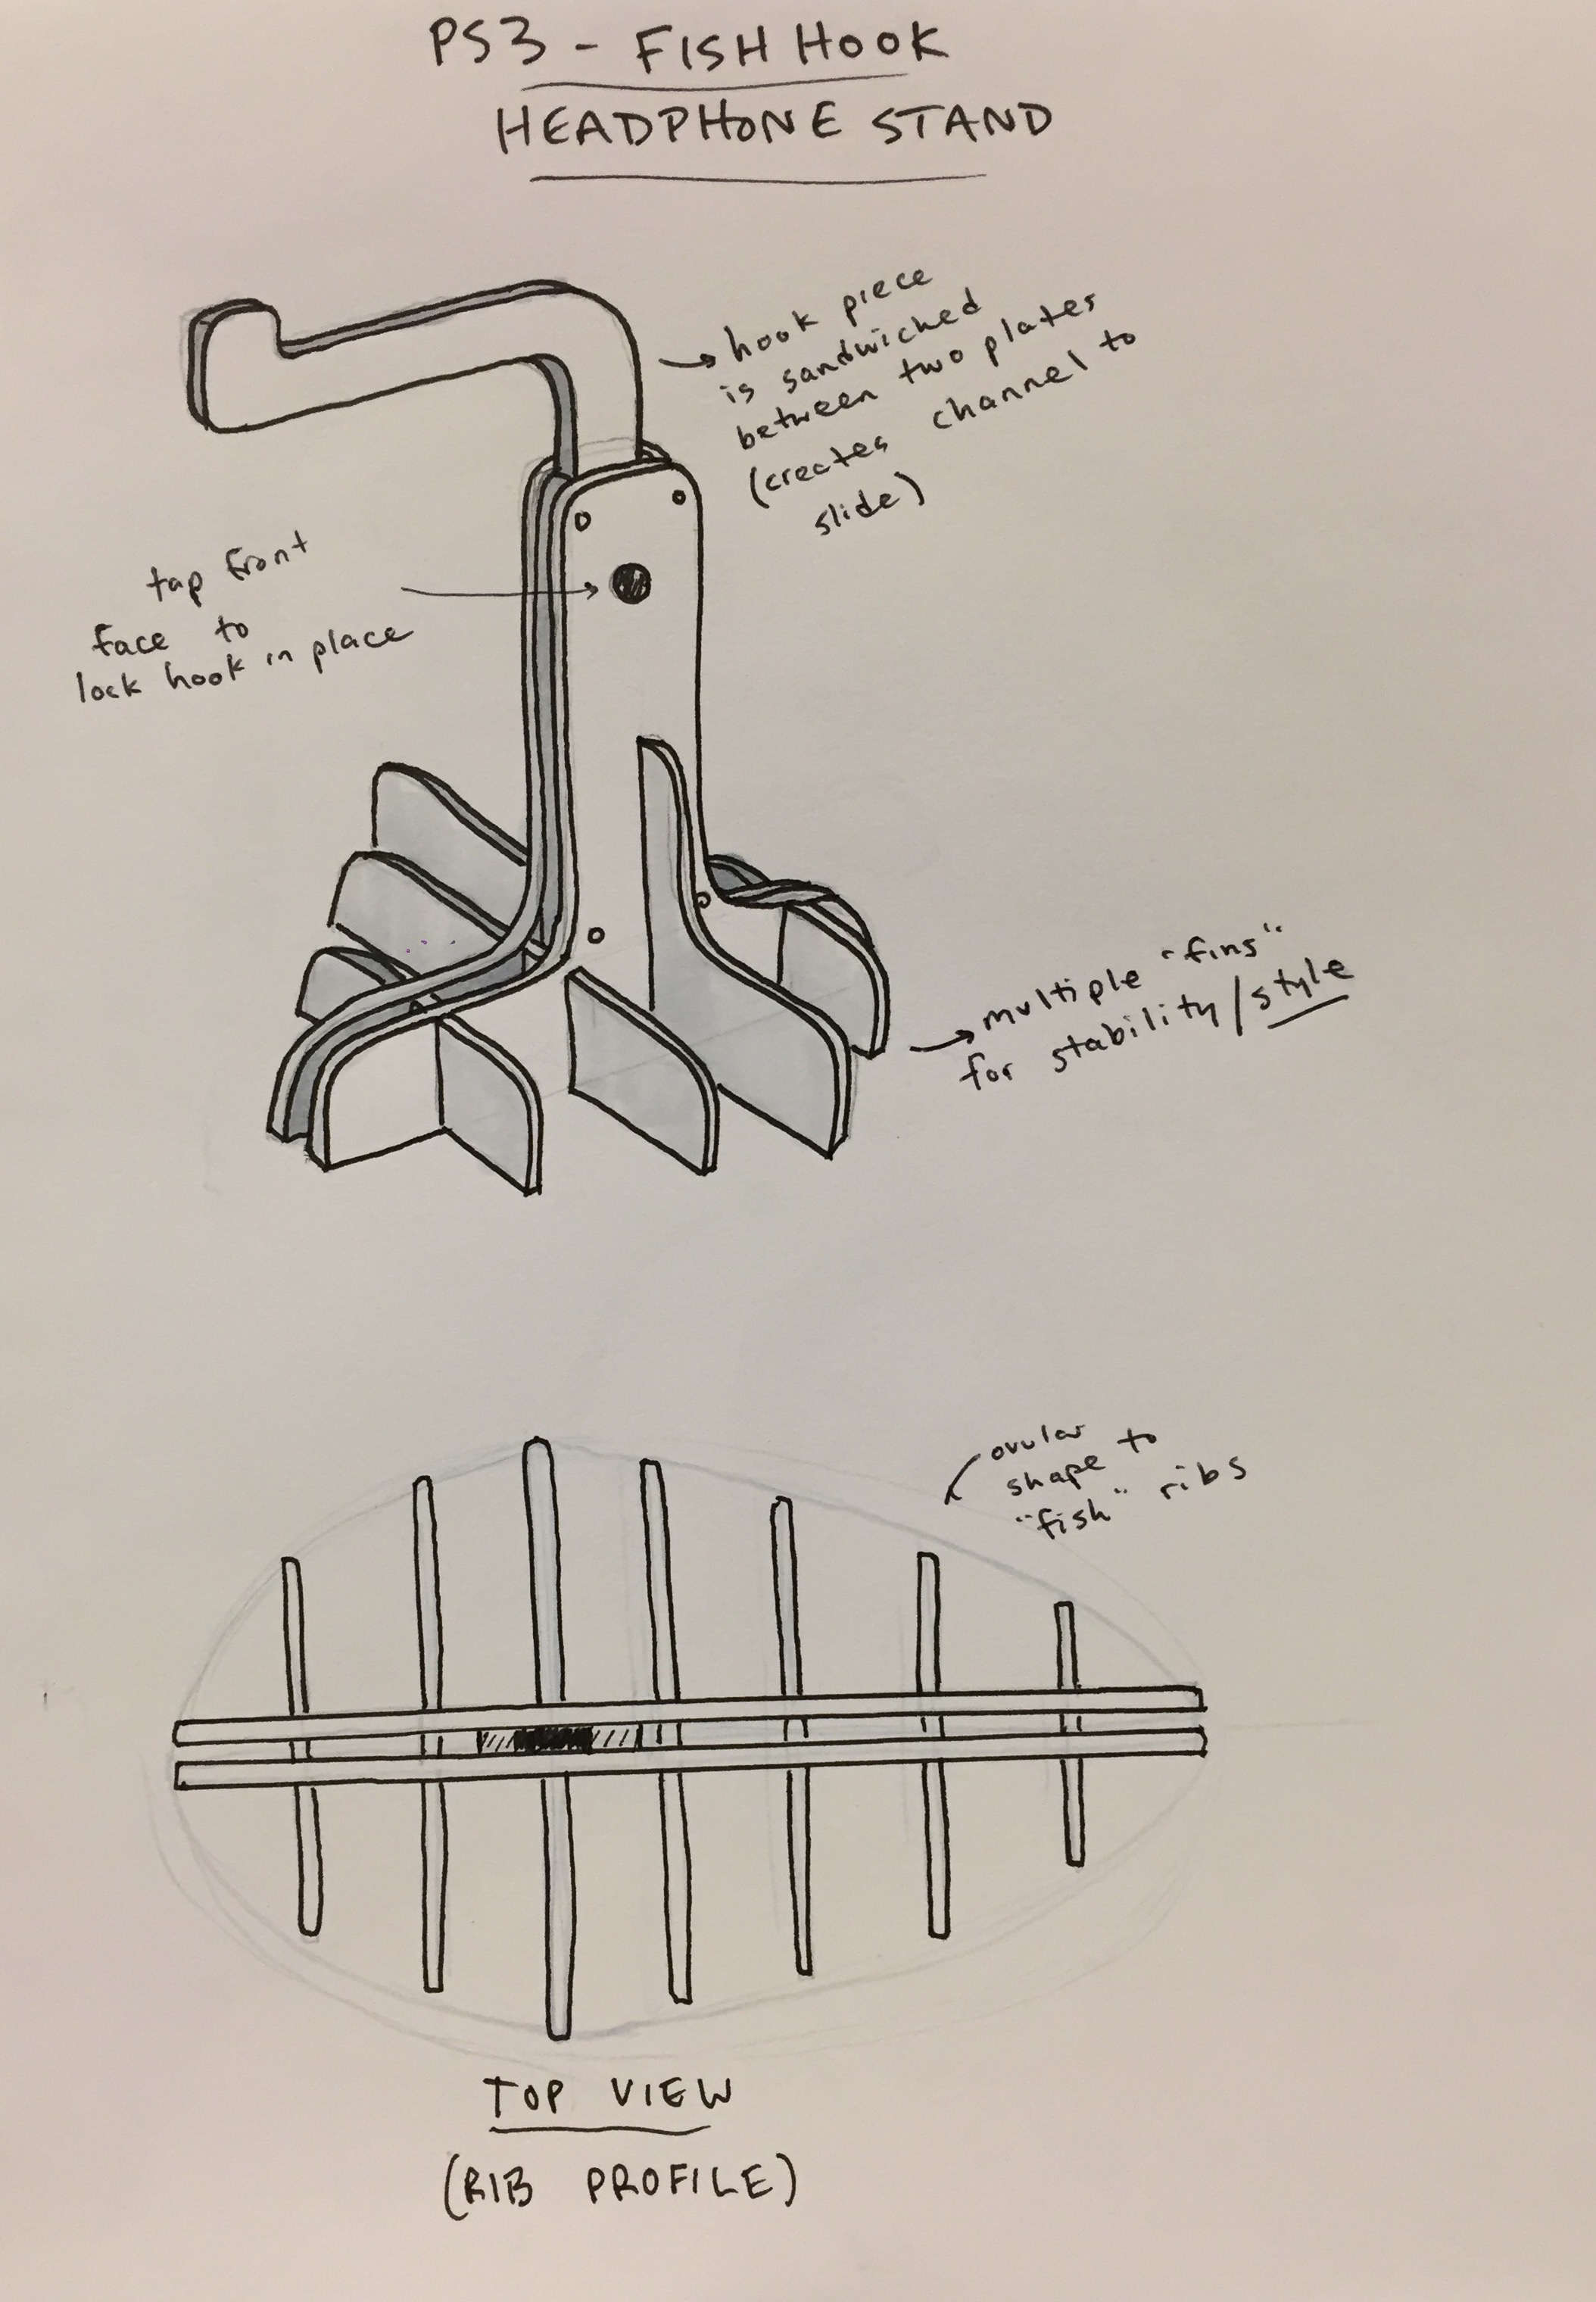 PS3 - FISH HOOK
HEADPHONE STAND
hook piece
is sandwiched
between two plates
(creates channel to
slide)
tap front
face to
lock hook in place
multiple "fins"
for stability/style
ovular
shape to
"fish" ribs
TOP VIEW
(RIB PROFILE)